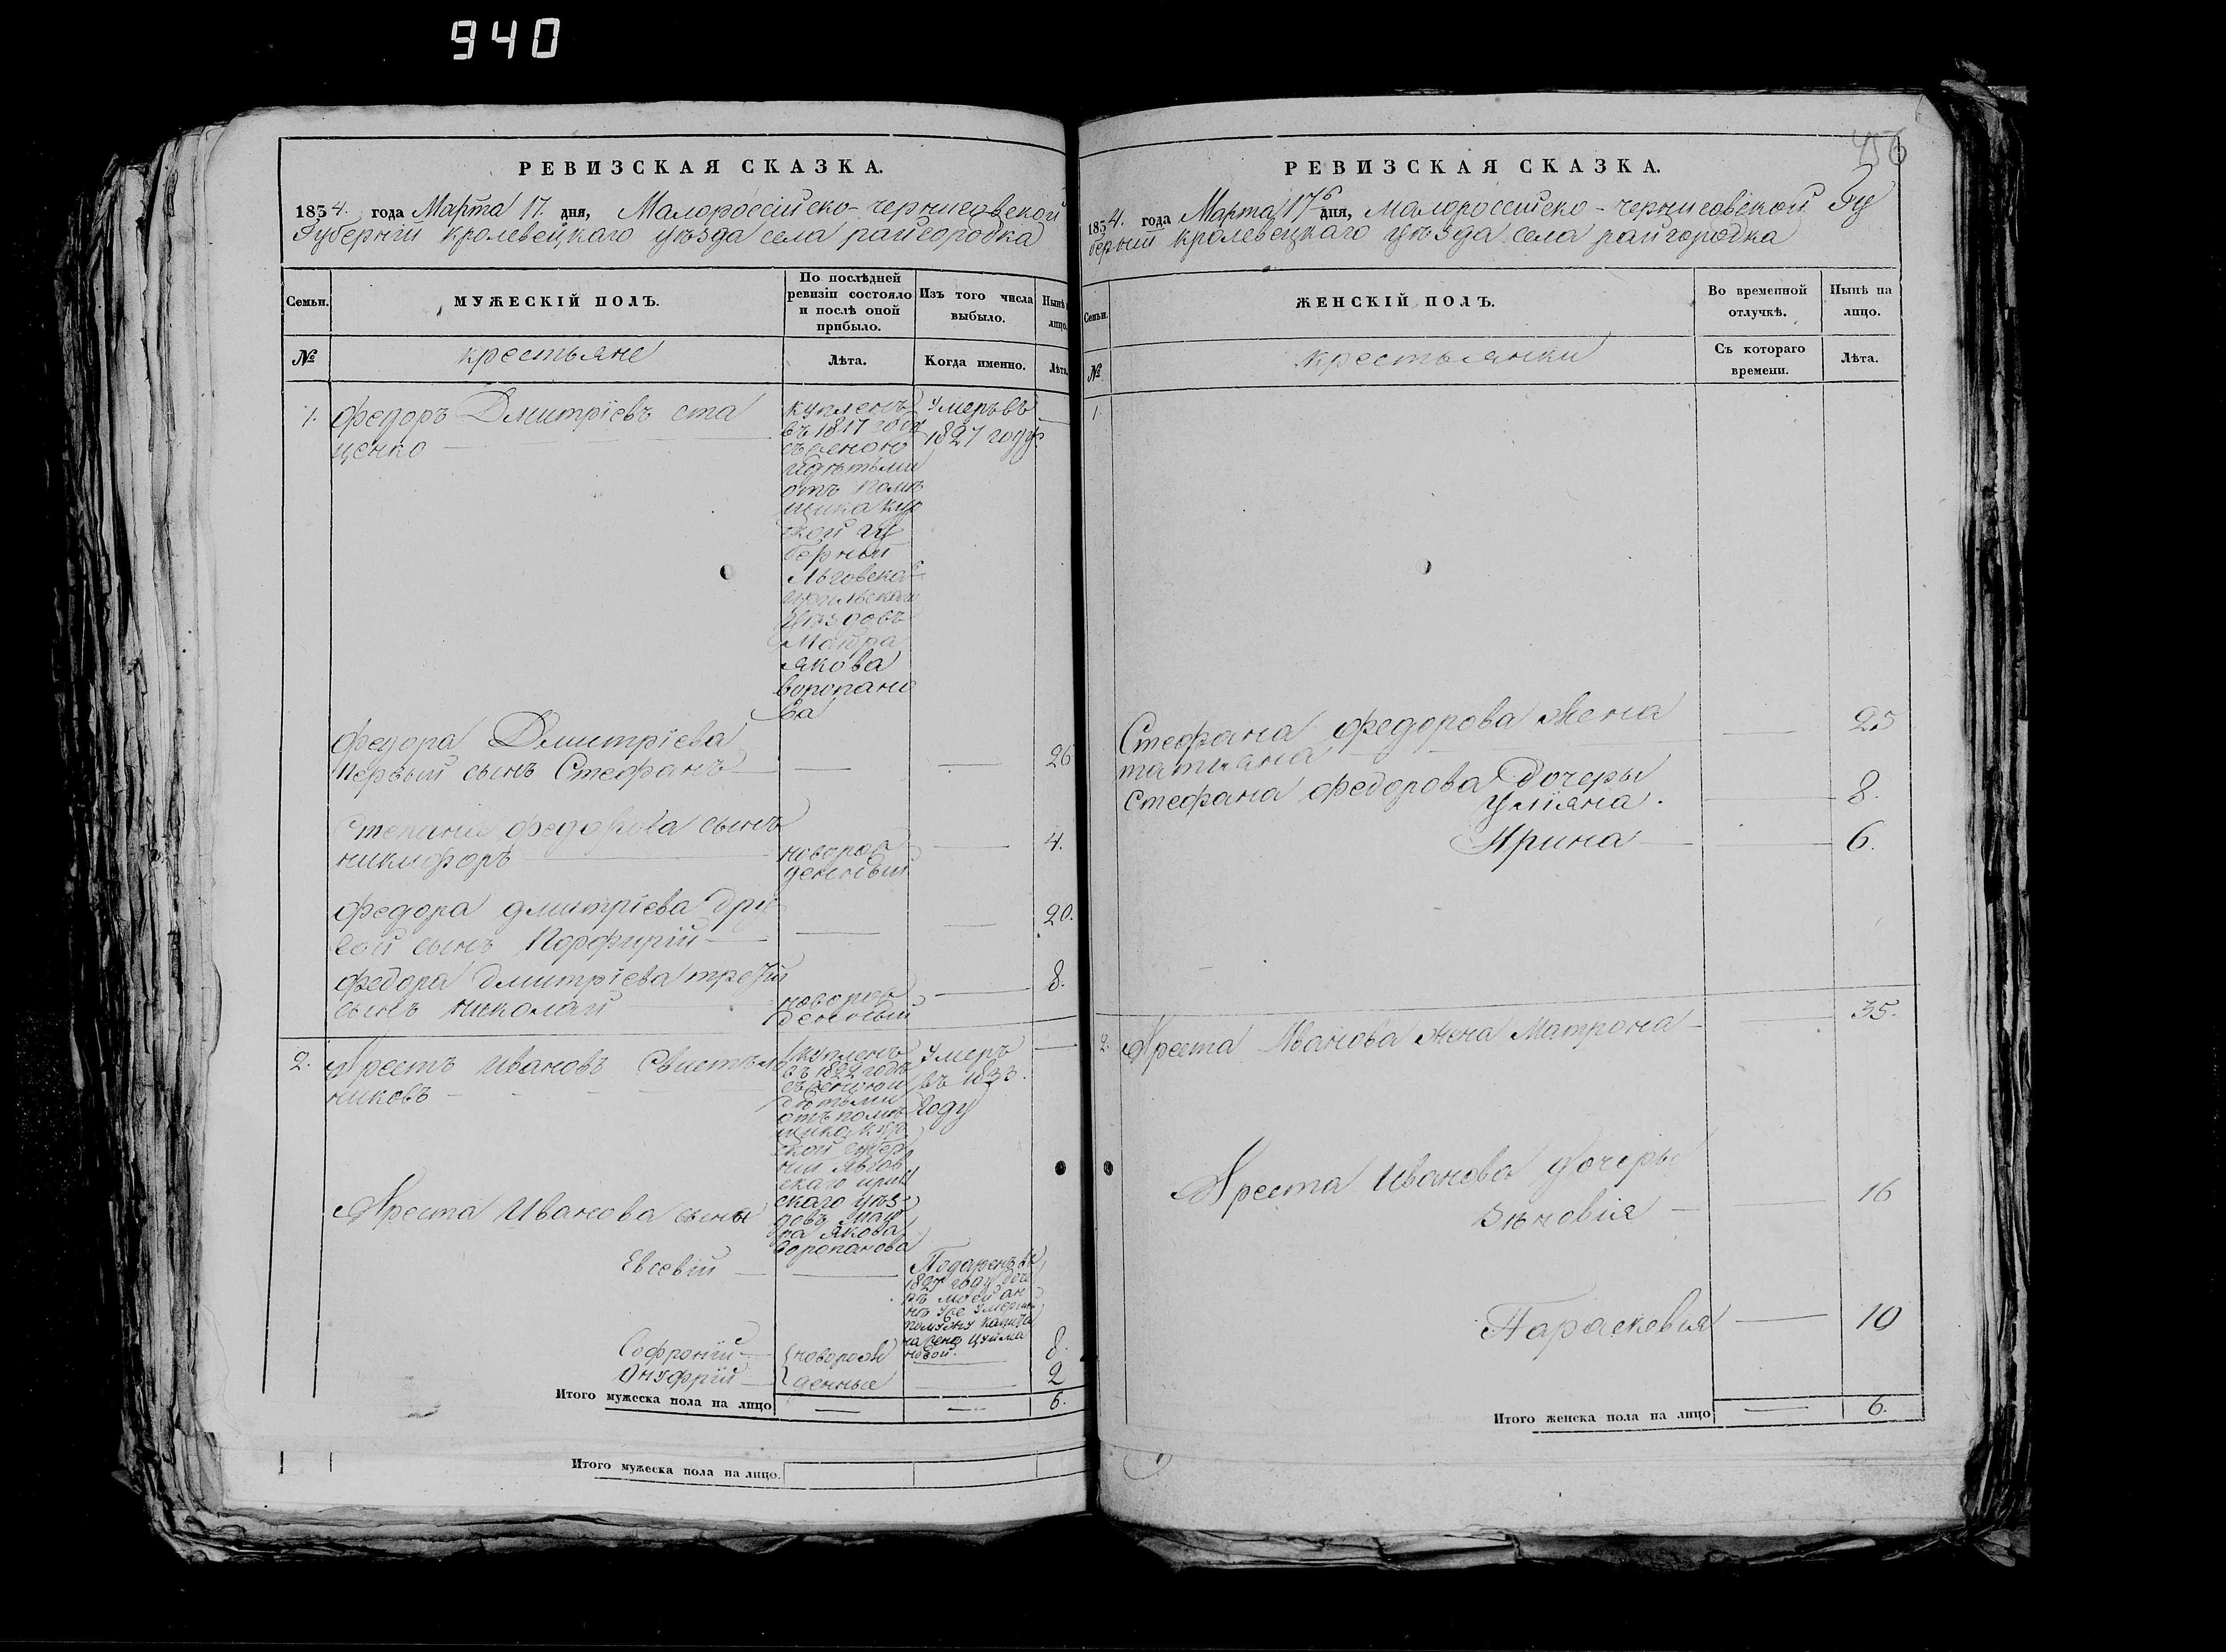 940
РЕВИЗСКАЯ СКАЗКА.
1834. года Марта 17. дня, Малороссійско-черниговской
Губерніи кролевецкаго уѣзда села райгородка
Семьи.
МУЖЕСКІЙ ПОЛЪ.
По послѣдней
ревизіи состояло
и послѣ оной
прибыло.
Изъ того числа
выбыло.
Нынѣ
лицо.
№
крестьяне
Лѣта.
Когда именно.
Лѣта.
1. федоръ Дмитріевъ ста
ценко
купленъ
въ 1817 году
съ женою
идѣтьми
отъ помѣ
щика кур
ской гу
берніи
Льговскаго
уѣздовъ
Маіора
якова
воропано
ва
Умеръ въ
1827 году
федора Дмитріева
первый сынъ Стефанъ
26
Степана федорова сынъ
никифоръ
новорож
денный
4.
федора дмитріева дру
гой сынъ Порфирій
20.
федора дмитріева третій
сынъ николай
новорож
денный
8.
2. Арестъ Ивановъ Свистѣль
никовъ
купленъ
въ 1822 годѣ
съ женою
дѣтьми
отъ помѣ
щика кур
ской губер
ніи Льгов
скаго
скаго уѣз
довъ Маіо
ра Якова
воропанова
Умеръ
въ 1833.
году
Ареста Иванова сына
Евсевій
Подаренъ въ
1827 году доче
рѣ моей ан
нѣ
Софроній
Онуфрій
новорож
денные
8.
2
Итого мужеска пола на лицо
6.
Итого мужеска пола на лицо.
456
РЕВИЗСКАЯ СКАЗКА.
1834. года Марта 17 дня, Малороссийско-черниговской Гу
берніи кролевецкаго уѣзда села райгородка
Семьи.
ЖЕНСКІЙ ПОЛЪ.
Во временной
отлучкѣ.
Нынѣ на
лицо.
№
крестьянки
Съ котораго
времени.
Лѣта.
1.
Стефана федорова жена
татиана
25
Стефана федорова Дочеры
Улїяна.
8.
Ирина
6.
2. Ареста Иванова жена Матрона
35.
Ареста Иванова дочеры
Зѣновія
16
Параскевія
10
Итого женска пола на лицо
6.